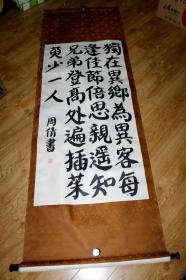 獨在異鄉為異客每
逢佳節倍思親遥知
兄弟登高处遍插茱
萸少一人
周倩書